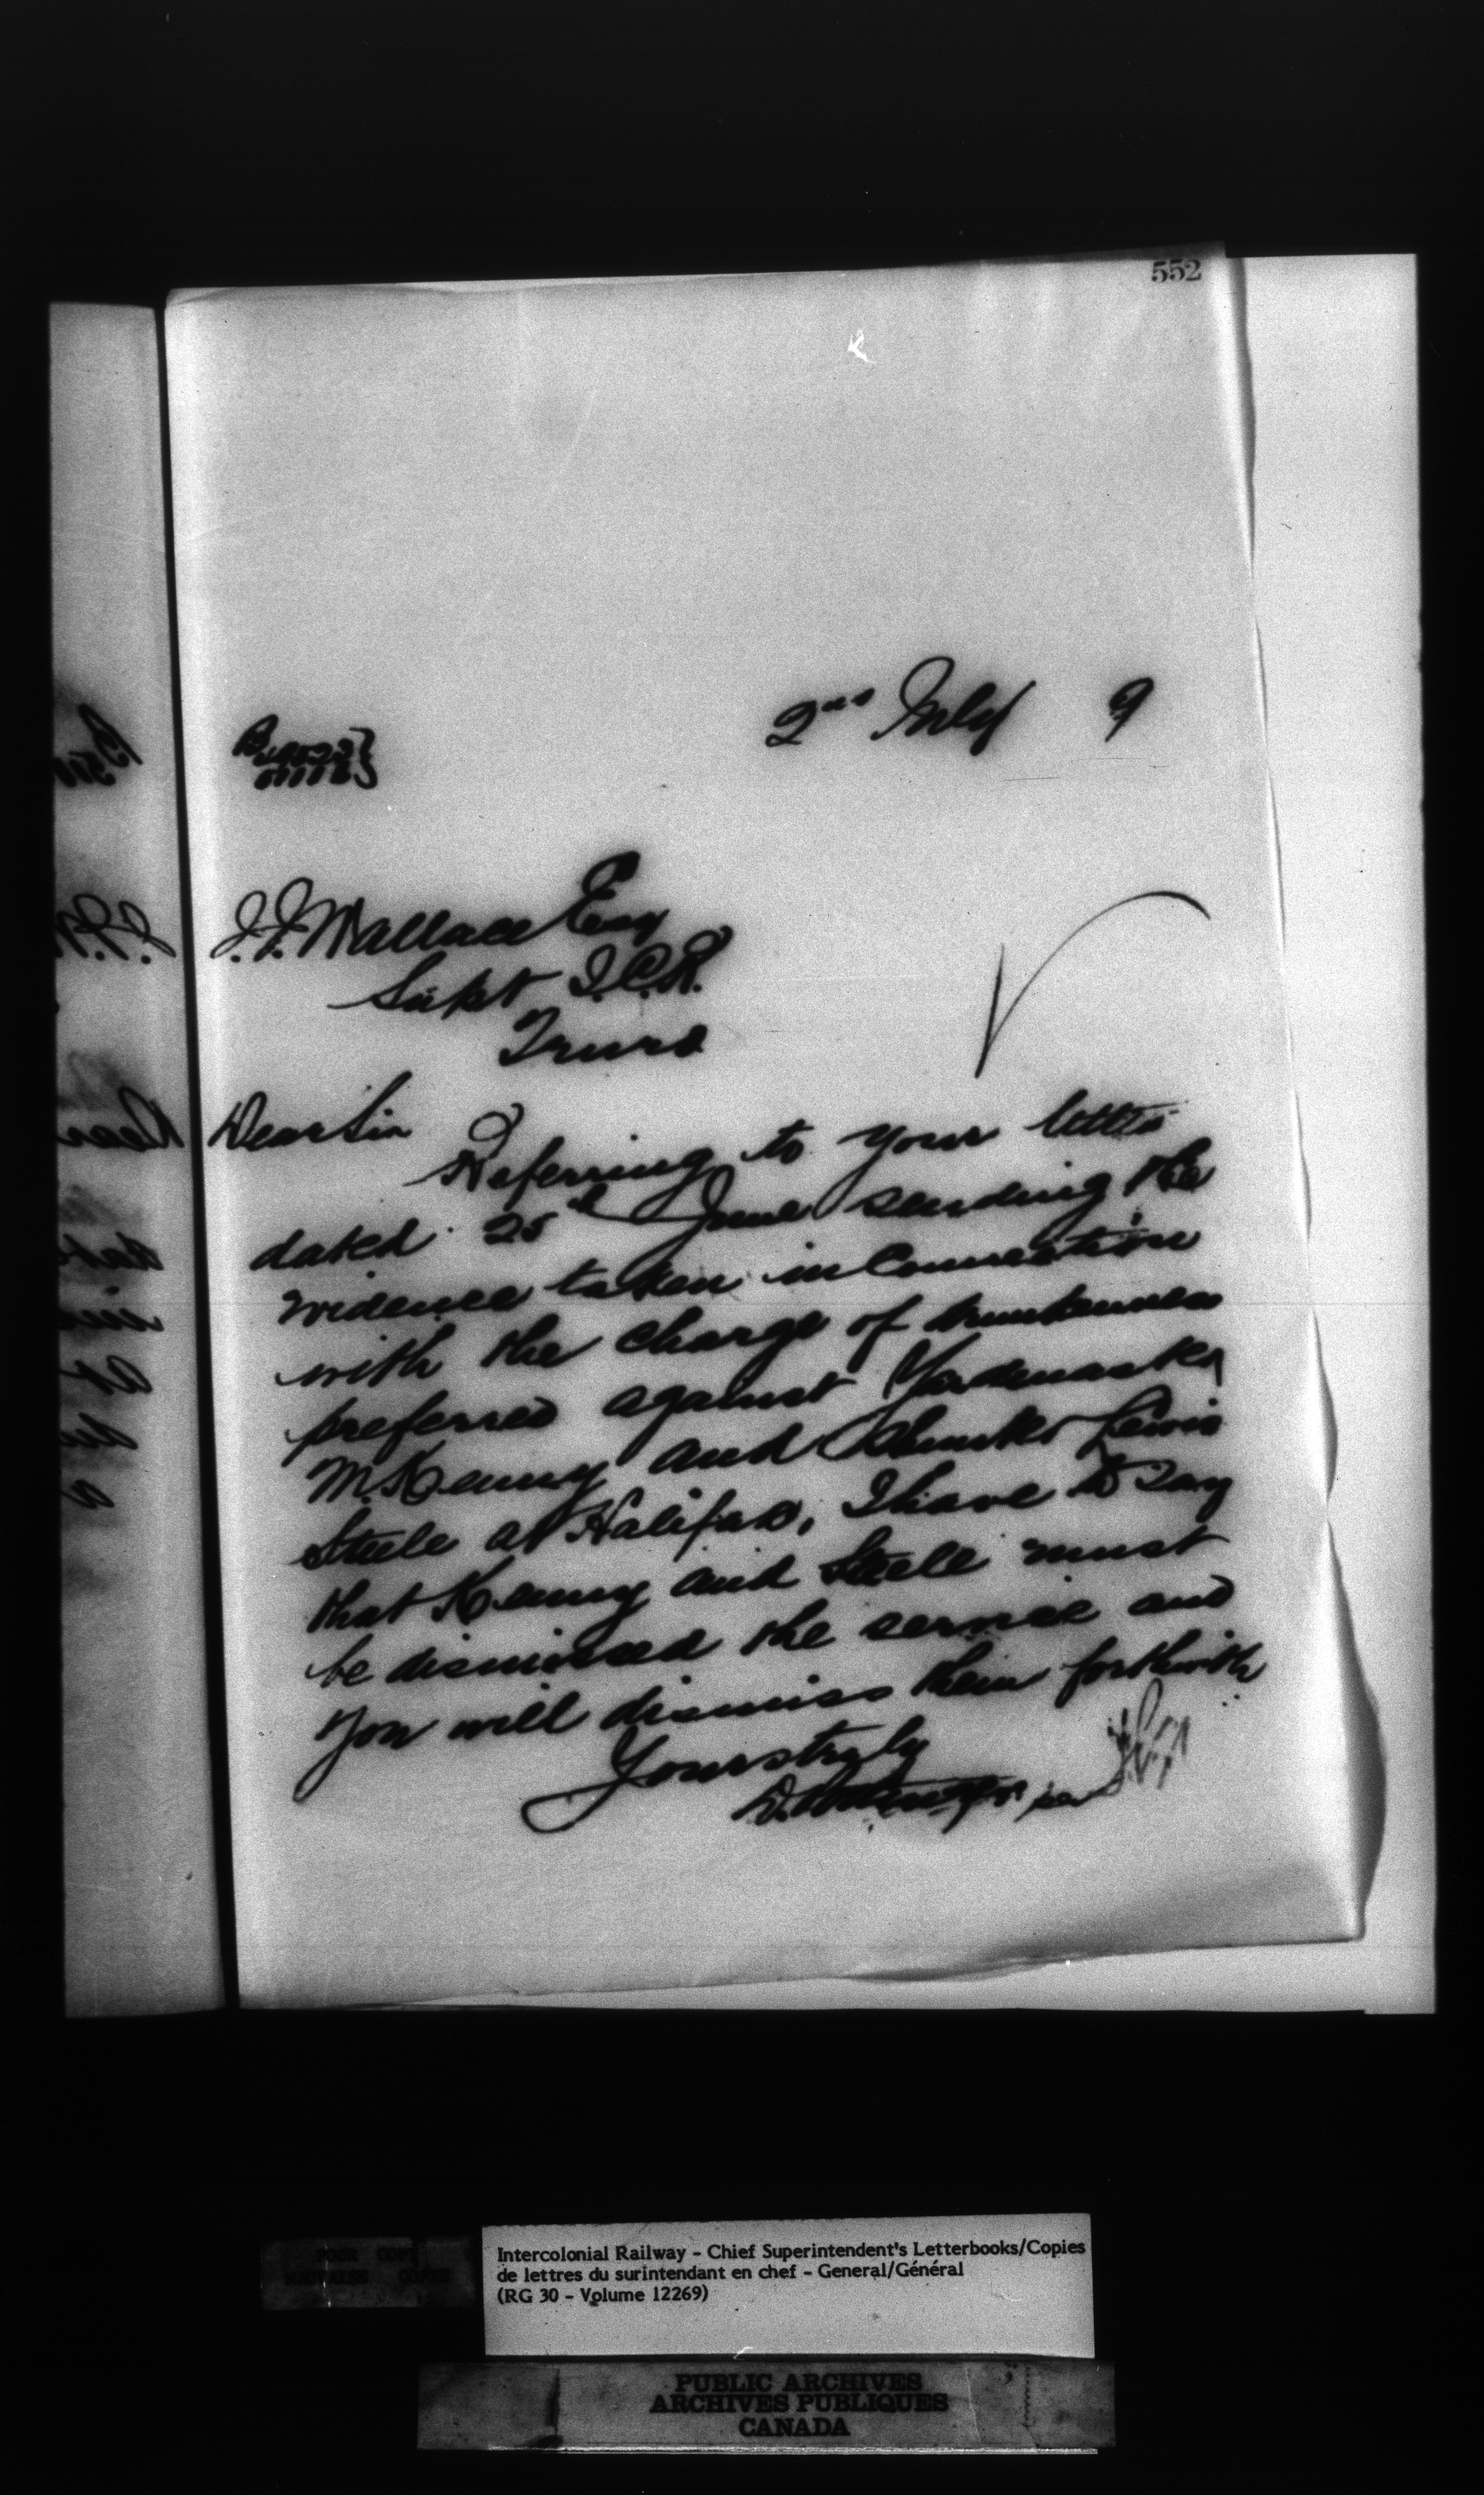 552
2nd July 9
J.J. Wallace Esq
Supt I.C.R.
Truro
Dear Sir
Referring to your letter
dated 25th June sending the
evidence taken in Connection
with the charge of drunkenness
preferred against Yardmaster
M. Kenny and Shunter Lewis
Steele at Halifax, I have to say
that Kenny and Steele must
be dismissed the service and
you will dismiss them forthwith
Yours truly
D. Pottinger per
Intercolonial Railway - Chief Superintendent's Letterbooks/Copies
de lettres du surintendant en chef - General/Général
(RG 30 - Volume 12269)
POOR COPY
MAUVAISE COPIE
PUBLIC ARCHIVES
ARCHIVES PUBLIQUES
CANADA